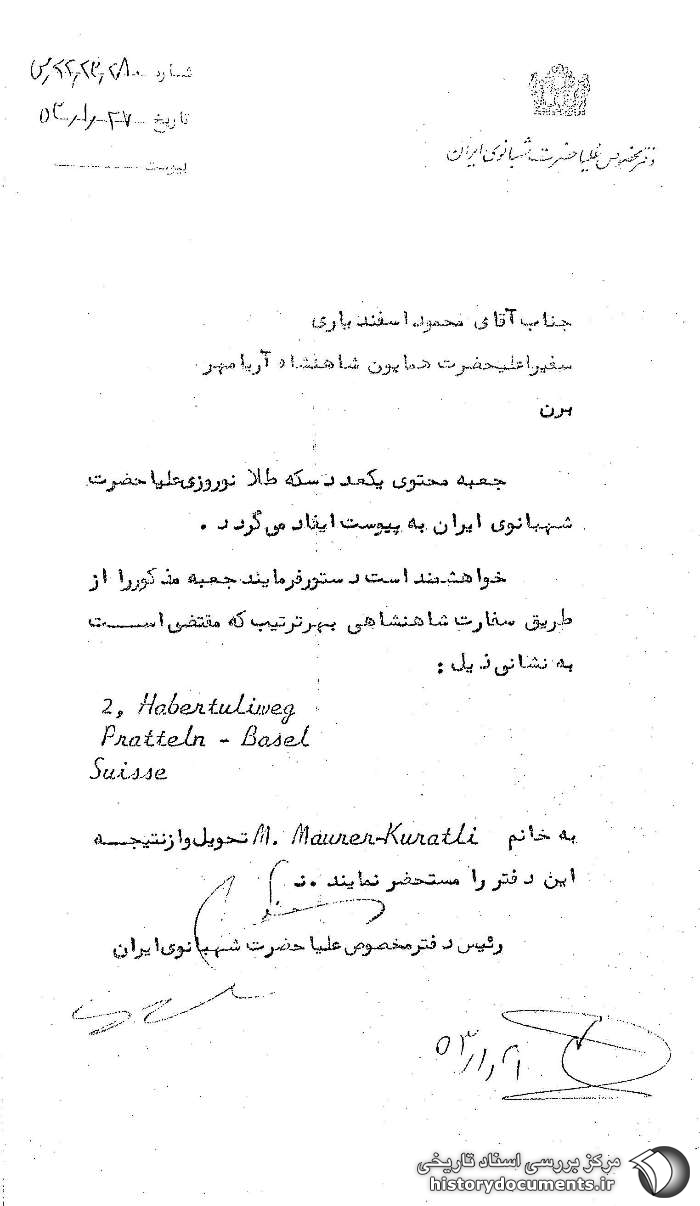 شماره
تاریخ ۵۳٫۱٫۲۷
پیوست
دفتر مخصوص علیاحضرت شهبانوی ایران
جناب آقای محمود اسفندیاری
سفیر اعلیحضرت همایون شاهنشاه آریامهر
برن
جعبه محتوی یکعدد سکه طلا نوروزی علیاحضرت
شهبانوی ایران به پیوست ایفاد می گردد .
خواهشمند است دستور فرمایند جعبه مذکور را از
طریق سفارت شاهنشاهی بهر ترتیب که مقتضی است
به نشانی ذیل :
2, Habertuliweg
Pratteln - Basel
Suisse
به خانم M. Maurer-Kuratli تحویل و از نتیجه
این دفتر را مستحضر نمایند .
رئیس دفتر مخصوص علیاحضرت شهبانوی ایران
مرکز بررسی اسناد تاریخی
historydocuments.ir